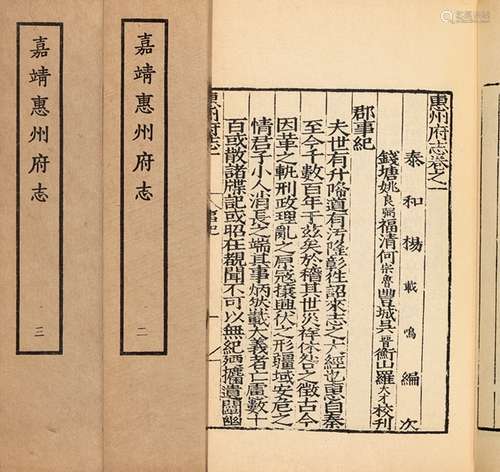 惠州府志卷之一
泰和楊載鳴編次
錢塘姚良弼福清何宗魯豐城吳晉衡山羅大才校刊
郡事紀
夫世有升降道有汚隆彰徃詔來志之大經也惠自秦
至今千數百年于茲矣於稽其世災祥休咎之徵古今
因革之軌刑政理亂之原寇攘興伏之形疆域安危之
情君子小人消長之端其事炳然載大義者亡慮數十
百或散諸牒記或昭在覩聞不可以無紀廼攟遺闡幽
惠州府志
事紀
嘉靖惠州府志
二
嘉靖惠州府志
三